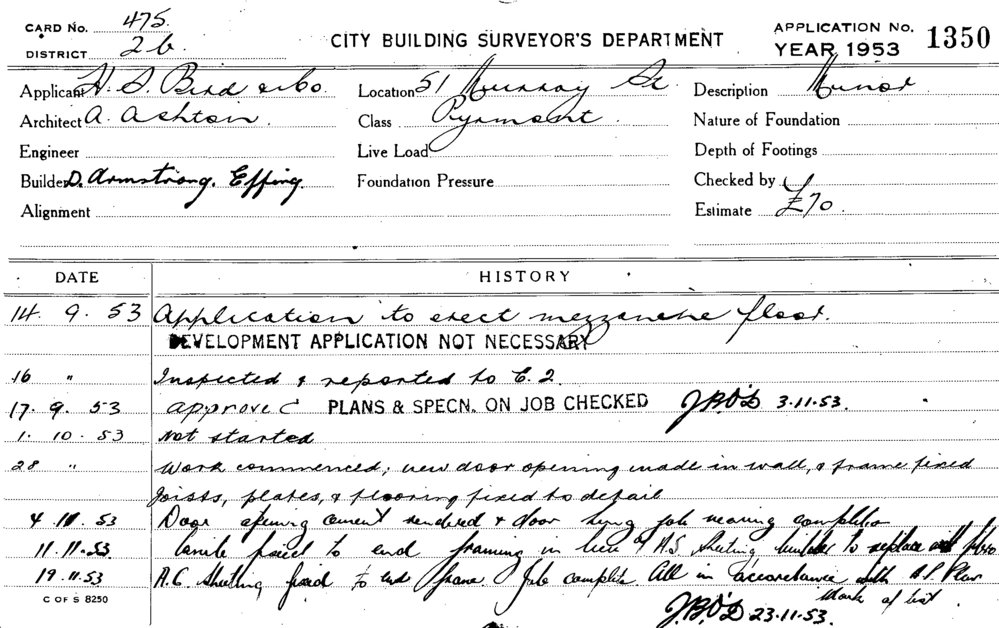 CARD NO. 475.
DISTRICT 2b.
CITY BUILDING SURVEYOR'S DEPARTMENT
APPLICATION NO. 1350
YEAR 1953
Applicant H. S. Bird & Co.
Location 51 Murray St
Description Minor
Architect A. Ashton.
Class Pyrmont.
Nature of Foundation
Engineer
Live Load
Depth of Footings
Builder D. Armstrong. Epping.
Foundation Pressure
Checked by
Alignment
Estimate £70.
DATE
HISTORY
14. 9. 53 Application to erect mezzanine floor.
DEVELOPMENT APPLICATION NOT NECESSARY
16 " Inspected & reported to E. 2.
17. 9. 53 Approved PLANS & SPECN. ON JOB CHECKED J.B.O'D 3.11.53.
1. 10. 53 Not started
28 " Work commenced; new door opening made in wall, & frame fixed
Joists, plates, & flooring fixed to detail
4.11.53 Door opening cement rendered & door hung job nearing completion
11.11.53 fixed to end framing in lieu of A.S Sheeting builder to replace with
19.11.53 A.C. Sheeting fixed to end frame Job complete All in accordance with A.P. Plan
C OF S 8250
Mark of list.
J.B.O'D 23.11.53.